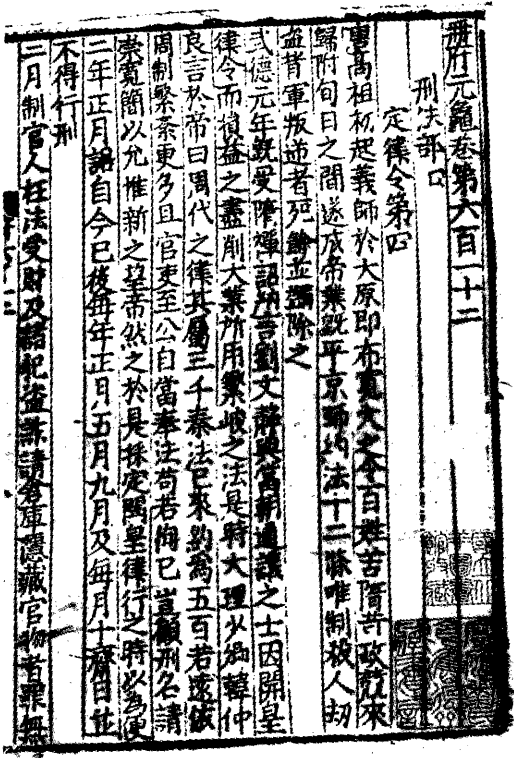 冊府元龜卷第六百一十二
刑法部
定律令第四
唐高祖初起義師於大原即布寬大之令百姓苦隋苛政競來
歸附旬日之間遂成帝業旣平京師約法十二條唯制殺人劫
盜背軍叛逆者死餘並蠲除之
武德元年旣受隋禪詔納言劉文靜與當朝通識之士因開皇
律令而損益之盡削大業所用繁峻之法是時大理少卿韓仲
良言於帝曰周代之律其屬三千秦法已來約爲五百若遠依
周制繁紊更多且官吏至公自當奉法苟若徇己豈顧刑名請
崇寬簡以允惟新之望帝然之於是採定開皇律行之時以為便
二年正月詔自今已後每年正月五月九月及每月十齋日並
不得行刑
二月制官人枉法受財及諸犯盜詐請倉庫隱藏官物者罪無